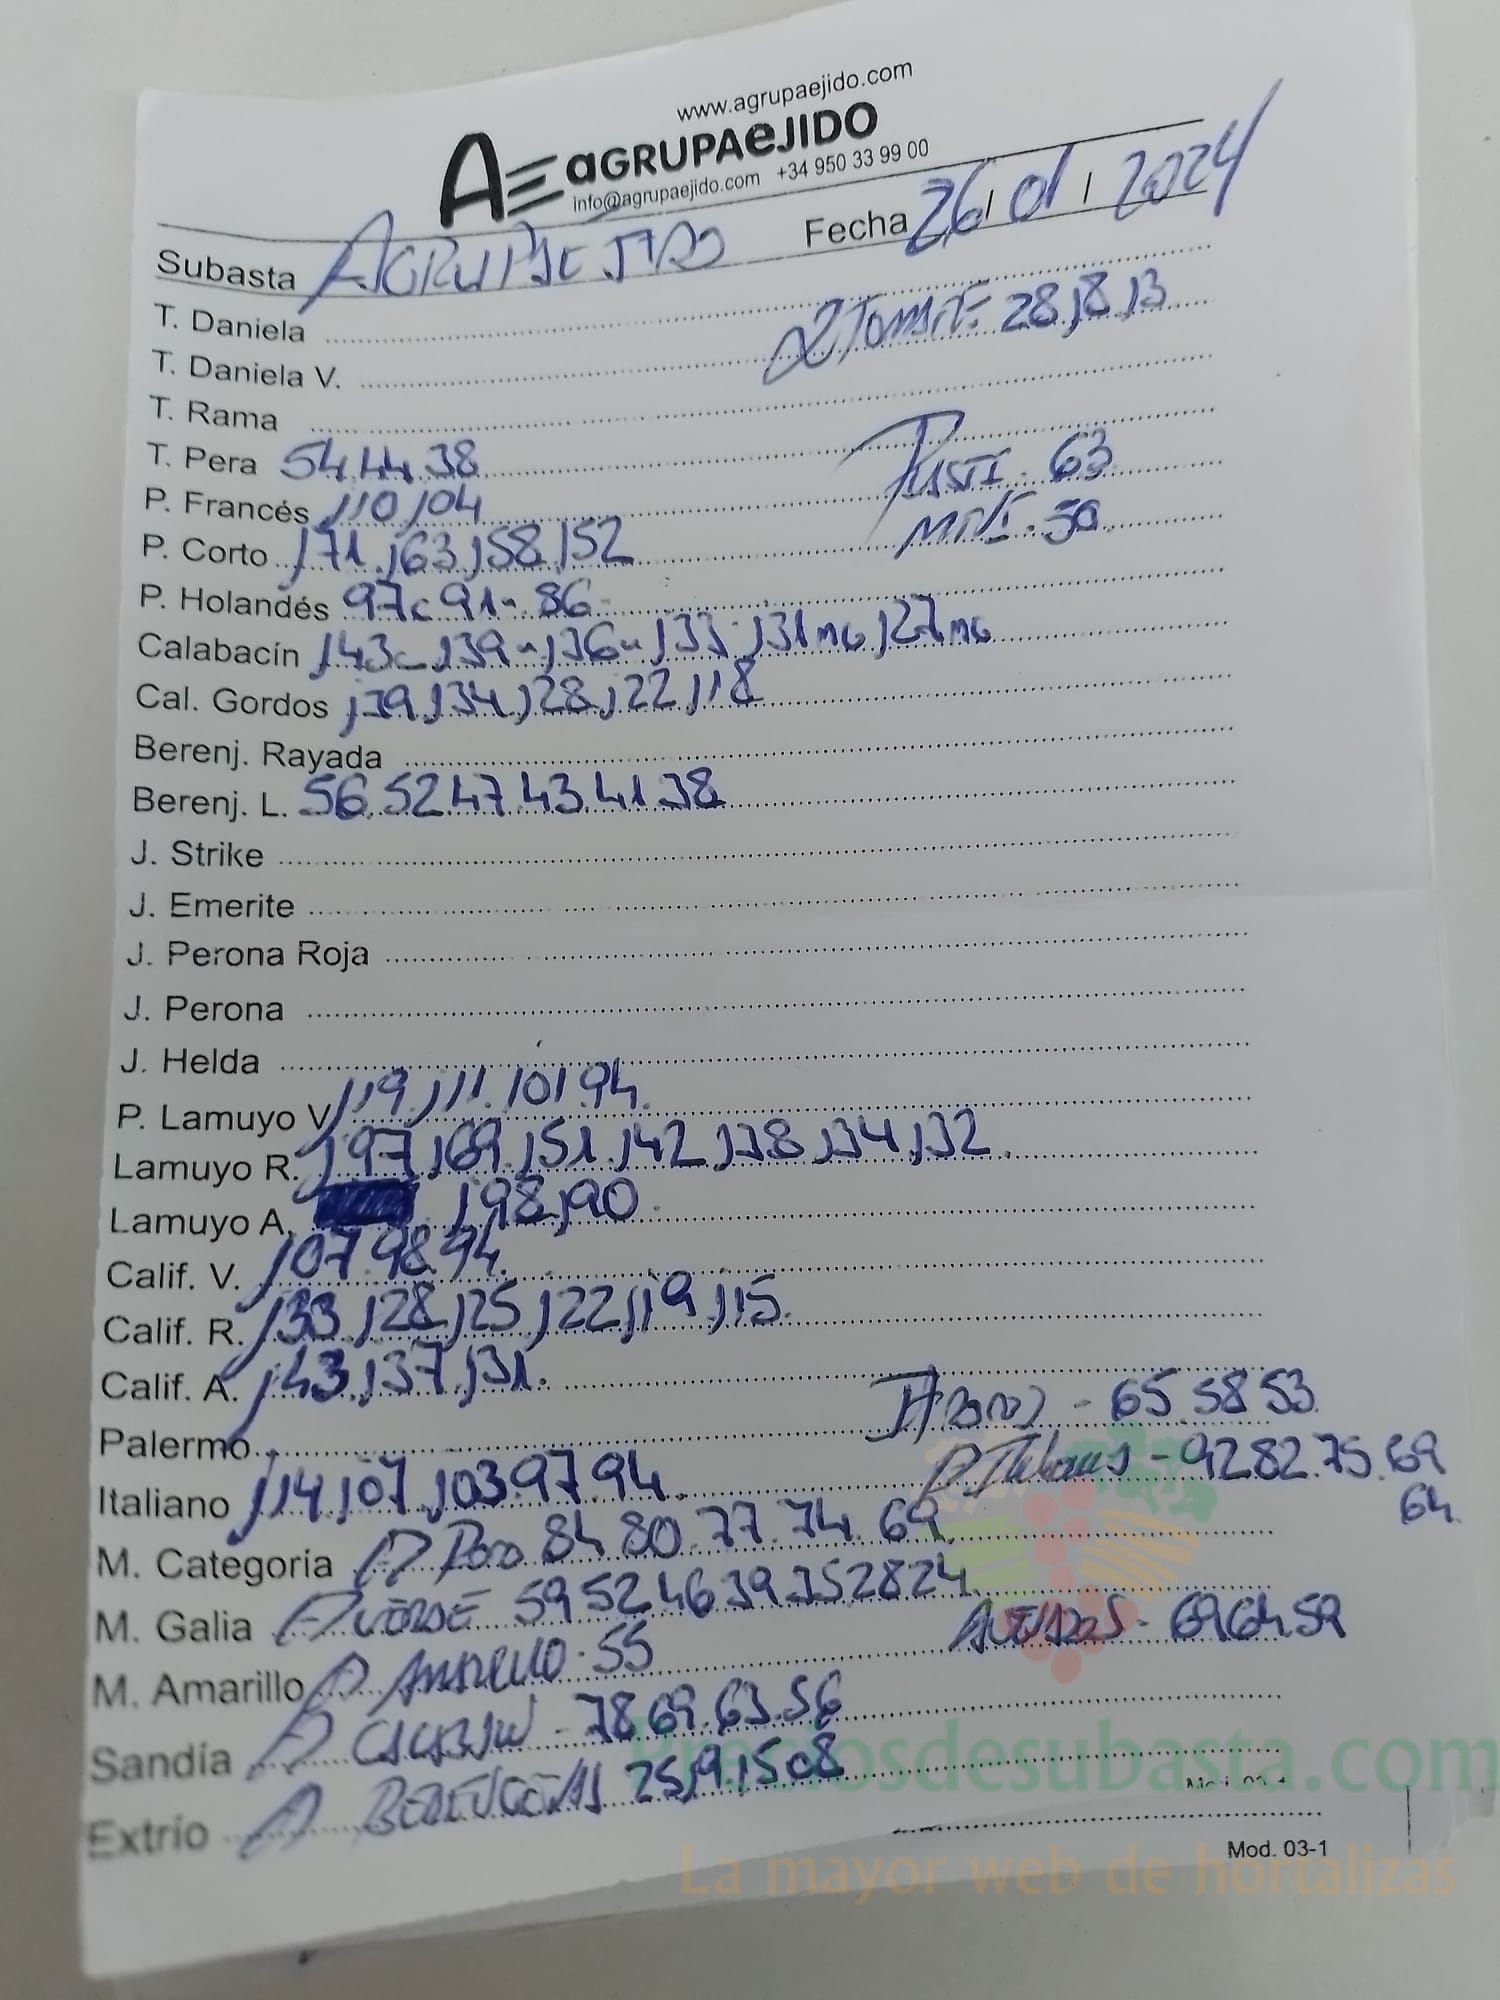 www.agrupaejido.com
AE aGRUPAeJIDO
info@agrupaejido.com +34 950 33 99 00
Subasta AGRUPAEJIDO Fecha 26/01/2024
T. Daniela
T. Daniela V. 28,8,13
T. Rama
T. Pera 54.44.38 63
P. Francés 110,104 MINI. 50
P. Corto 171,163,158,152
P. Holandés 97c 91- 86-
Calabacín 143-139-136-133-131mG,127mG
Cal. Gordos 139,134,128,122,118
Berenj. Rayada
Berenj. L. 56.52.47.43.41.38
J. Strike
J. Emerite
J. Perona Roja
J. Perona
J. Helda
P. Lamuyo V 119,111.101.94.
Lamuyo R. 197,169.151.142,138,134,132.
Lamuyo A. 198,190.
Calif. V. 107.98.94.
Calif. R. 133,128,125,122,119,115.
Calif. A. 143,137,131.
Palermo - 65.58.53.
Italiano 114,107,103.97.94. P. Italianos - 92.82.75.69
64.
M. Categoría P Rojo 84 80.77.74.69
M. Galia P VERDE 59 52 46 39 35 28 24
M. Amarillo P AMARILLO. 55 - 69.64.59
Sandía P CALABACIN - 78 69.63.56
Extrío P BERENGENAS 25,19,15 08
Preciosdesubasta.com
La mayor web de hortalizas
Mod. 03-1